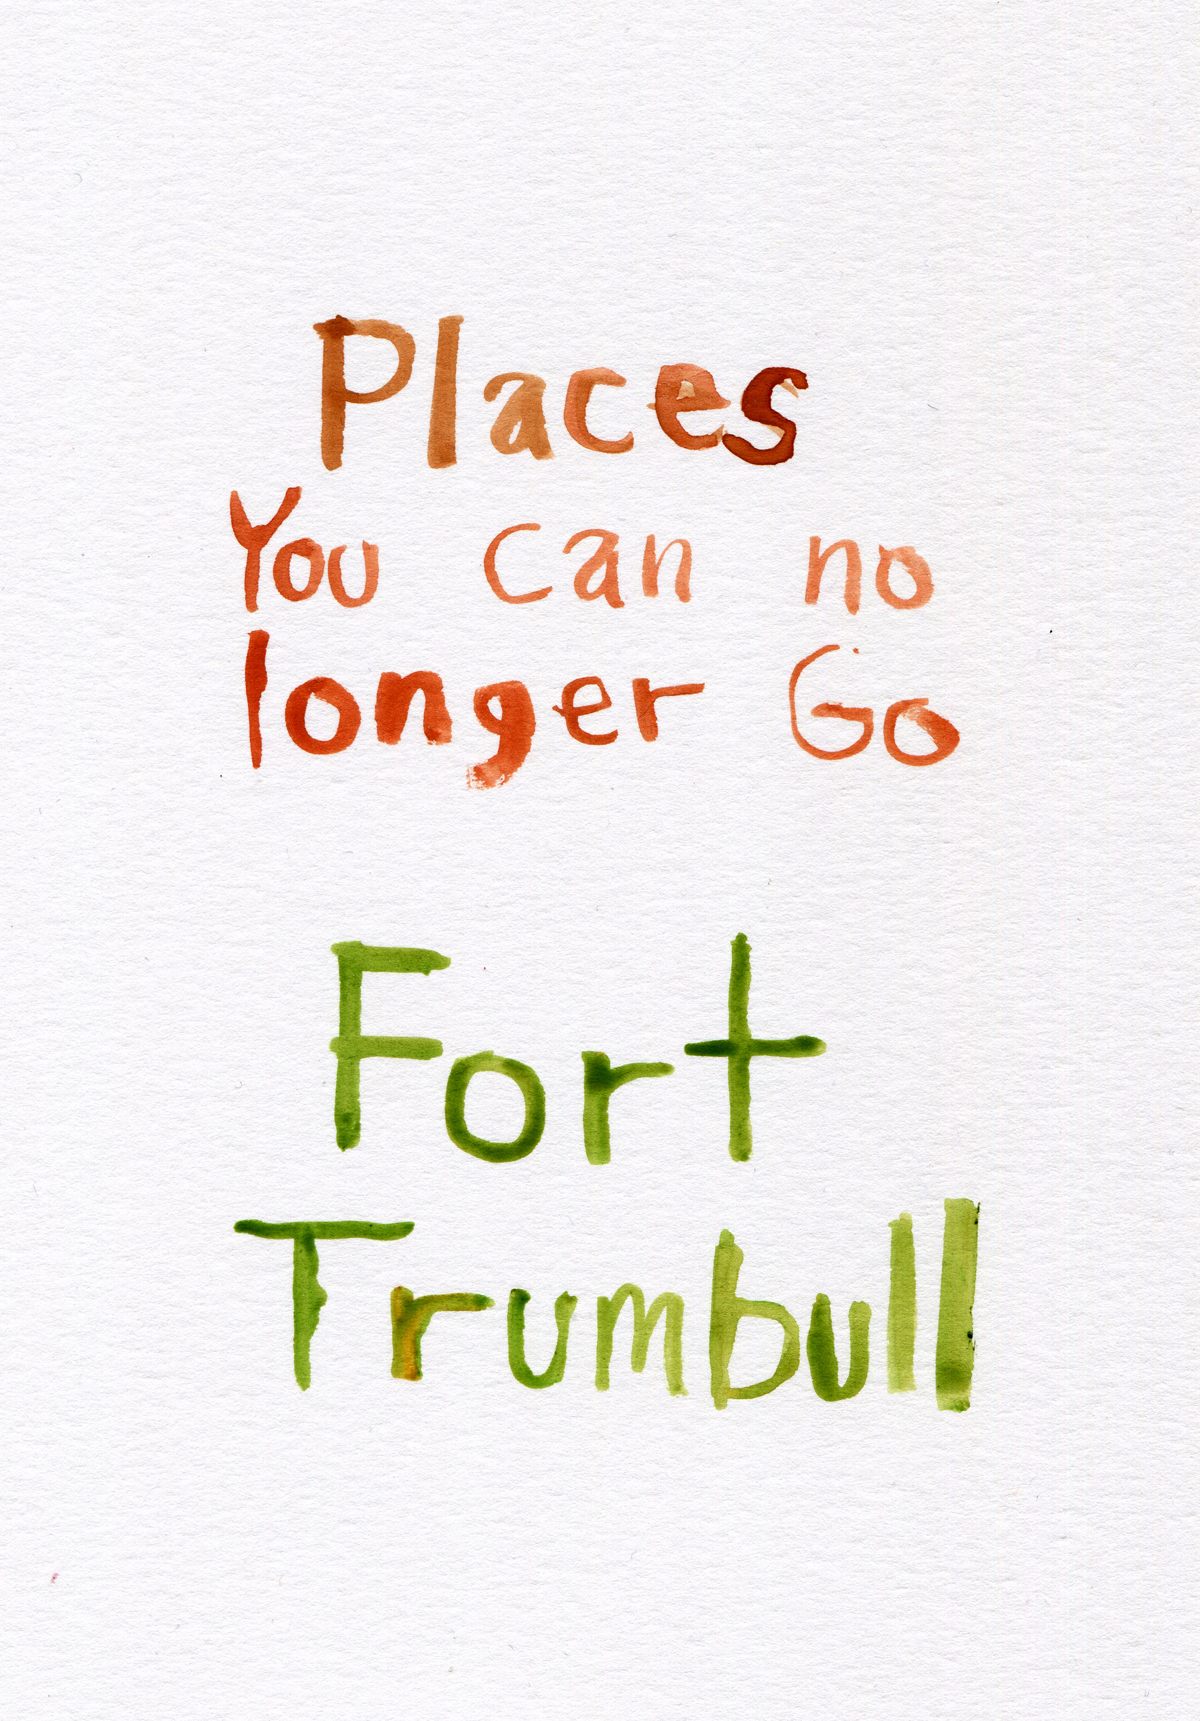 Places
You can no
longer Go
Fort
Trumbull